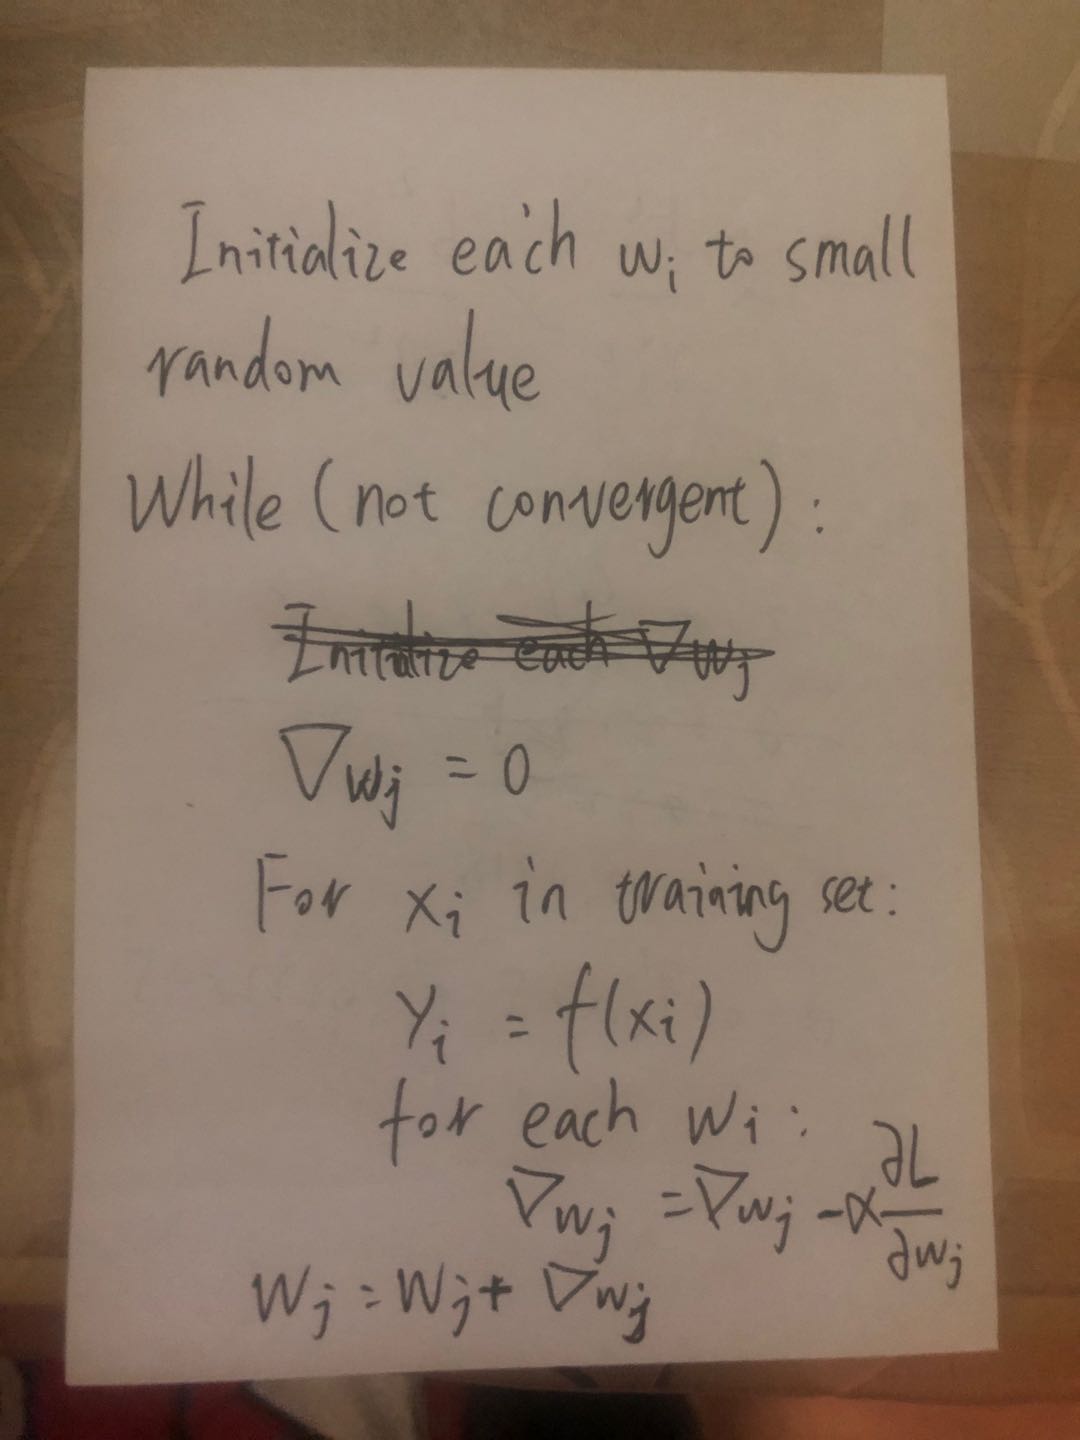 Initialize each wᵢ to small
random value
While (not convergent) :
Initialize each ∇wⱼ
∇wⱼ = 0
For xᵢ in training set:
Yᵢ = f(xᵢ)
for each wᵢ :
∇wⱼ = ∇wⱼ - α ∂L/∂wⱼ
Wⱼ = Wⱼ + ∇wⱼ